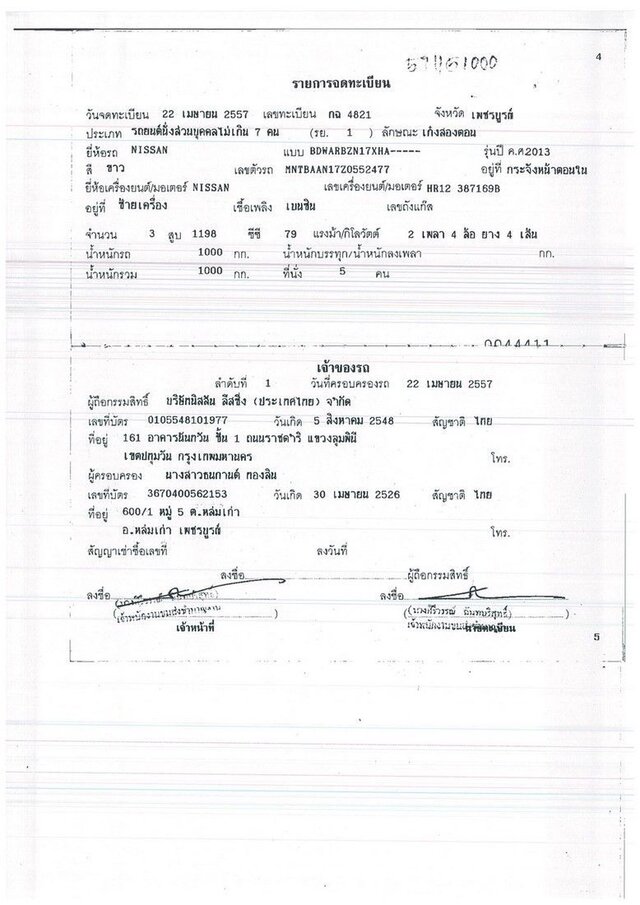 4
รายการจดทะเบียน
วันจดทะเบียน 22 เมษายน 2557 เลขทะเบียน กฉ 4821 จังหวัด เพชรบูรณ์
ประเภท รถยนต์นั่งส่วนบุคคลไม่เกิน 7 คน (รย. 1 ) ลักษณะ เก๋งสองตอน
ยี่ห้อรถ NISSAN แบบ BDWARBZN17XHA----- รุ่นปี ค.ศ2013
สี ขาว เลขตัวรถ MNTBAAN17Z0552477 อยู่ที่ กระจังหน้าตอนใน
ยี่ห้อเครื่องยนต์/มอเตอร์ NISSAN เลขเครื่องยนต์/มอเตอร์ HR12 387169B
อยู่ที่ ซ้ายเครื่อง เชื้อเพลิง เบนซิน เลขถังแก๊ส
จำนวน 3 สูบ 1198 ซีซี 79 แรงม้า/กิโลวัตต์ 2 เพลา 4 ล้อ ยาง 4 เส้น
น้ำหนักรถ 1000 กก. น้ำหนักบรรทุก/น้ำหนักลงเพลา กก.
น้ำหนักรวม 1000 กก. ที่นั่ง 5 คน
0044411
เจ้าของรถ
ลำดับที่ 1 วันที่ครอบครองรถ 22 เมษายน 2557
ผู้ถือกรรมสิทธิ์ บริษัทนิสสัน ลีสซิ่ง (ประเทศไทย) จำกัด
เลขที่บัตร 0105548101977 วันเกิด 5 สิงหาคม 2548 สัญชาติ ไทย
ที่อยู่ 161 อาคารนันทวัน ชั้น 1 ถนนราชดำริ แขวงลุมพินี
เขตปทุมวัน กรุงเทพมหานคร โทร.
ผู้ครอบครอง นางสาวธนกานต์ ทองสิน
เลขที่บัตร 3670400562153 วันเกิด 30 เมษายน 2526 สัญชาติ ไทย
ที่อยู่ 600/1 หมู่ 5 ต.หล่มเก่า
อ.หล่มเก่า เพชรบูรณ์ โทร.
สัญญาเช่าซื้อเลขที่ ลงวันที่
ลงชื่อ ผู้ถือกรรมสิทธิ์
ลงชื่อ ลงชื่อ
เจ้าพนักงานขนส่งชำนาญงาน
เจ้าหน้าที่ นายทะเบียน
5